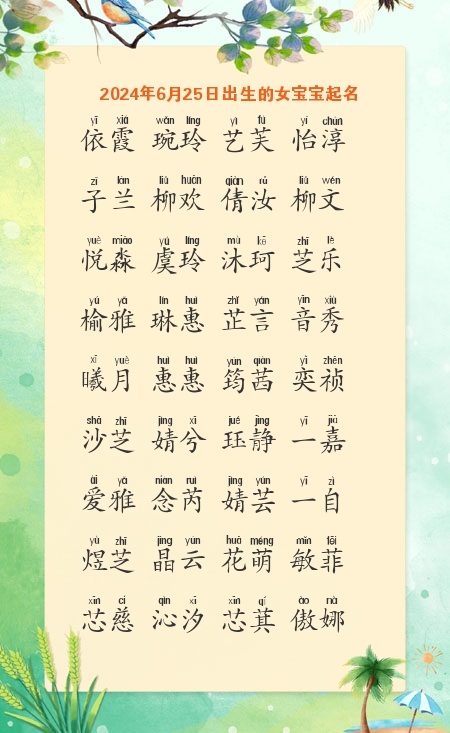 2024年6月25日出生的女宝宝起名
yī xiá wǎn líng yì fú yí chún
依霞 琬玲 艺芙 怡淳
zǐ lán liǔ huān qiàn rǔ liǔ wén
子兰 柳欢 倩汝 柳文
yuè miǎo yú líng mù kē zhī lè
悦淼 虞玲 沐珂 芝乐
yú yǎ lín huì zhǐ yán yīn xiù
榆雅 琳惠 芷言 音秀
xī yuè huì huì yún qiàn yì zhēn
曦月 惠惠 筠茜 奕祯
shā zhī jìng xī jué jìng yī jiā
沙芝 婧兮 珏静 一嘉
ài yǎ niàn ruì jìng yún yī zì
爱雅 念芮 婧芸 一自
yù zhī jīng yún huā méng mǐn fēi
煜芝 晶云 花萌 敏菲
xīn cí qìn xī xīn qí ào nà
芯慈 沁汐 芯萁 傲娜